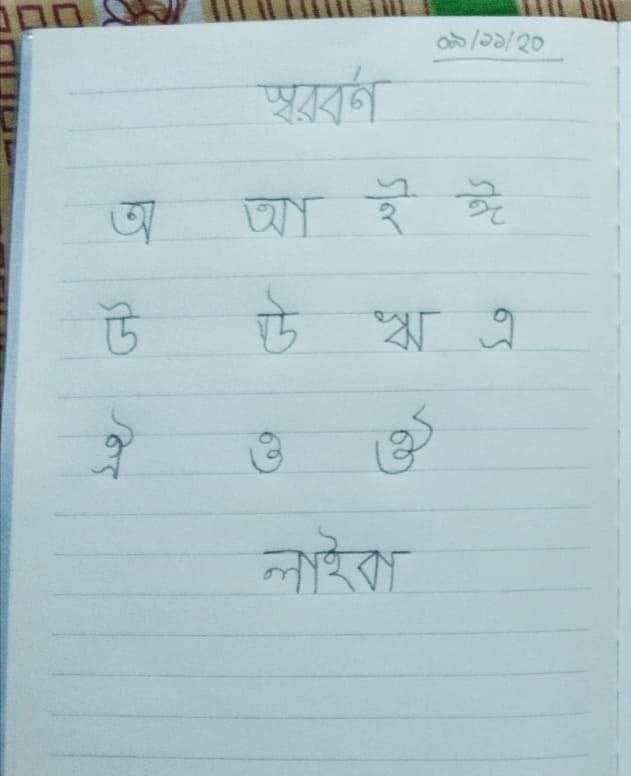 ০৯/১১/২০
স্বরবর্ণ
অ আ ই ঈ
উ ঊ ঋ এ
ঐ ও ঔ
লাইবা